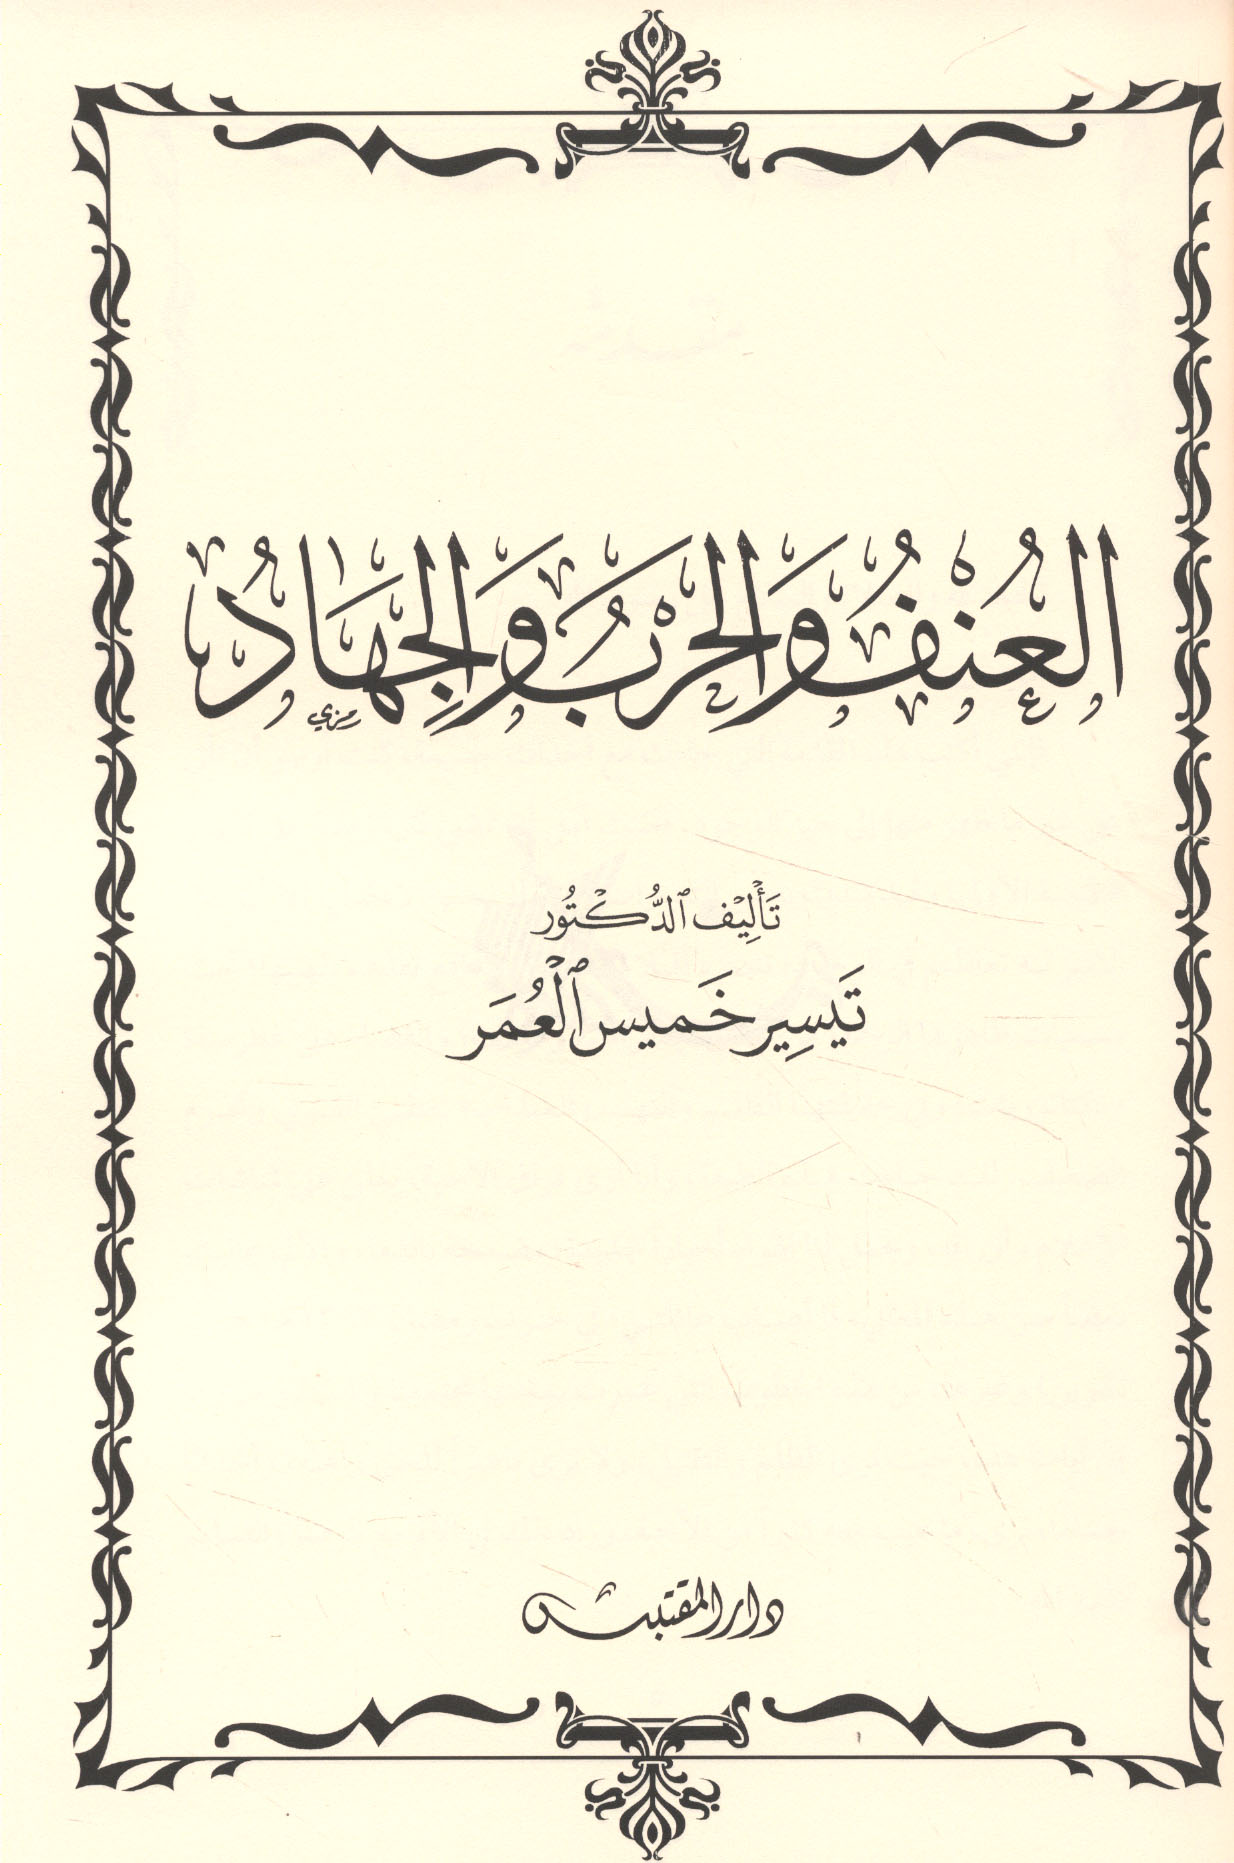 العُنْفُ وَالحَرْبُ وَالجِهَادُ
رمزي
تَأْلِيْف ٱلدُّكْتُور
تَيسِير خَميس ٱلْعُمَر
دار المقتبس